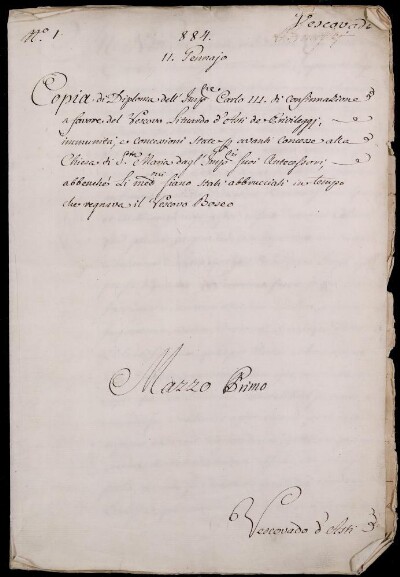 N.º 1.
884.
Vescovadi
11. Gennajo
Copia di Diploma dell' Imp.re Carlo III. di Confirmazione
a favore del Vescovo Sitnardo d'Asti de Privileggi,
immunità, e Concessioni State p. avanti Concesse alla
Chiesa di S.ta Maria dagl' Imp.ri suoi Antecessori,
abbenchè li med.mi siano stati abbrucciati in tempo
che regnava il Vescovo Bosco
Mazzo Primo
Vescovado d'Asti